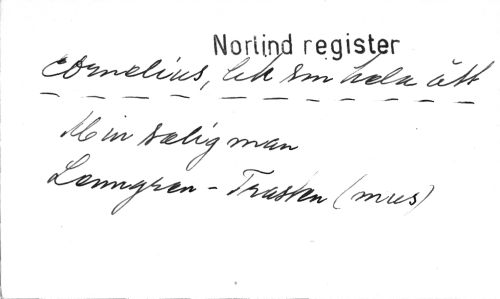 Norlind register
Cornelius, lik sin hela ätt
Min salig man
Lenngren - Trasten (mus)